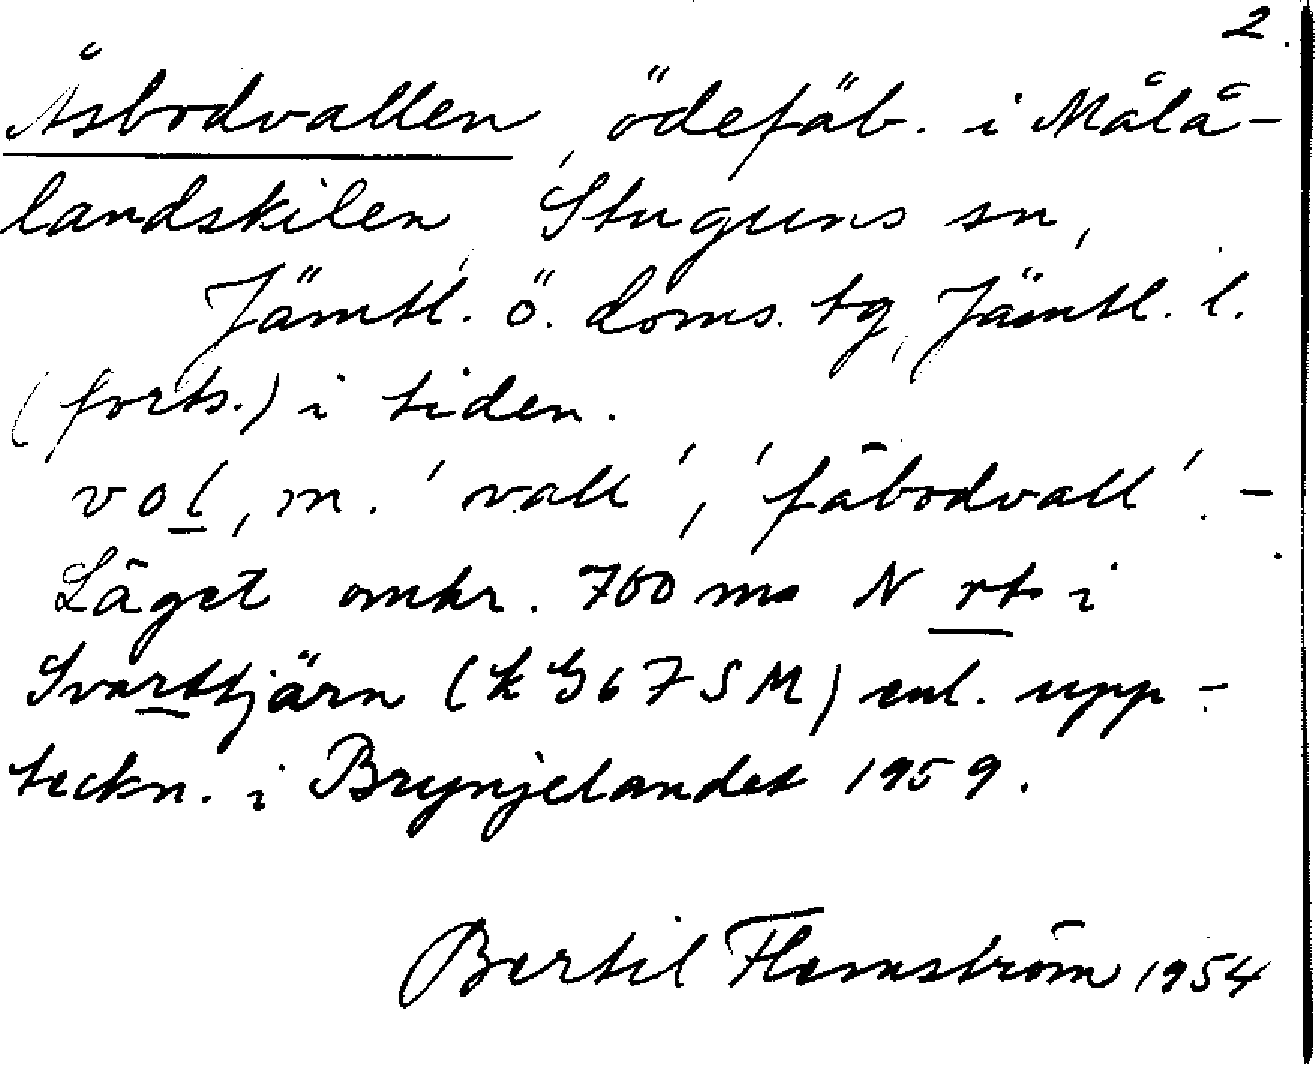 2.
Åsbodvallen, ödefäb. i Målå-
landskilen, Stuguns sn,
Jämtl. ö. doms. tg, Jämtl. l.
(forts.) i tiden.
vol, m. 'vall', 'fäbodvall'. -
Läget omkr. 700 m N rt i
Svarttjärn (k G67SM) enl. upp-
teckn. i Brynjelandet 1959.
Bertil Flemström 1954